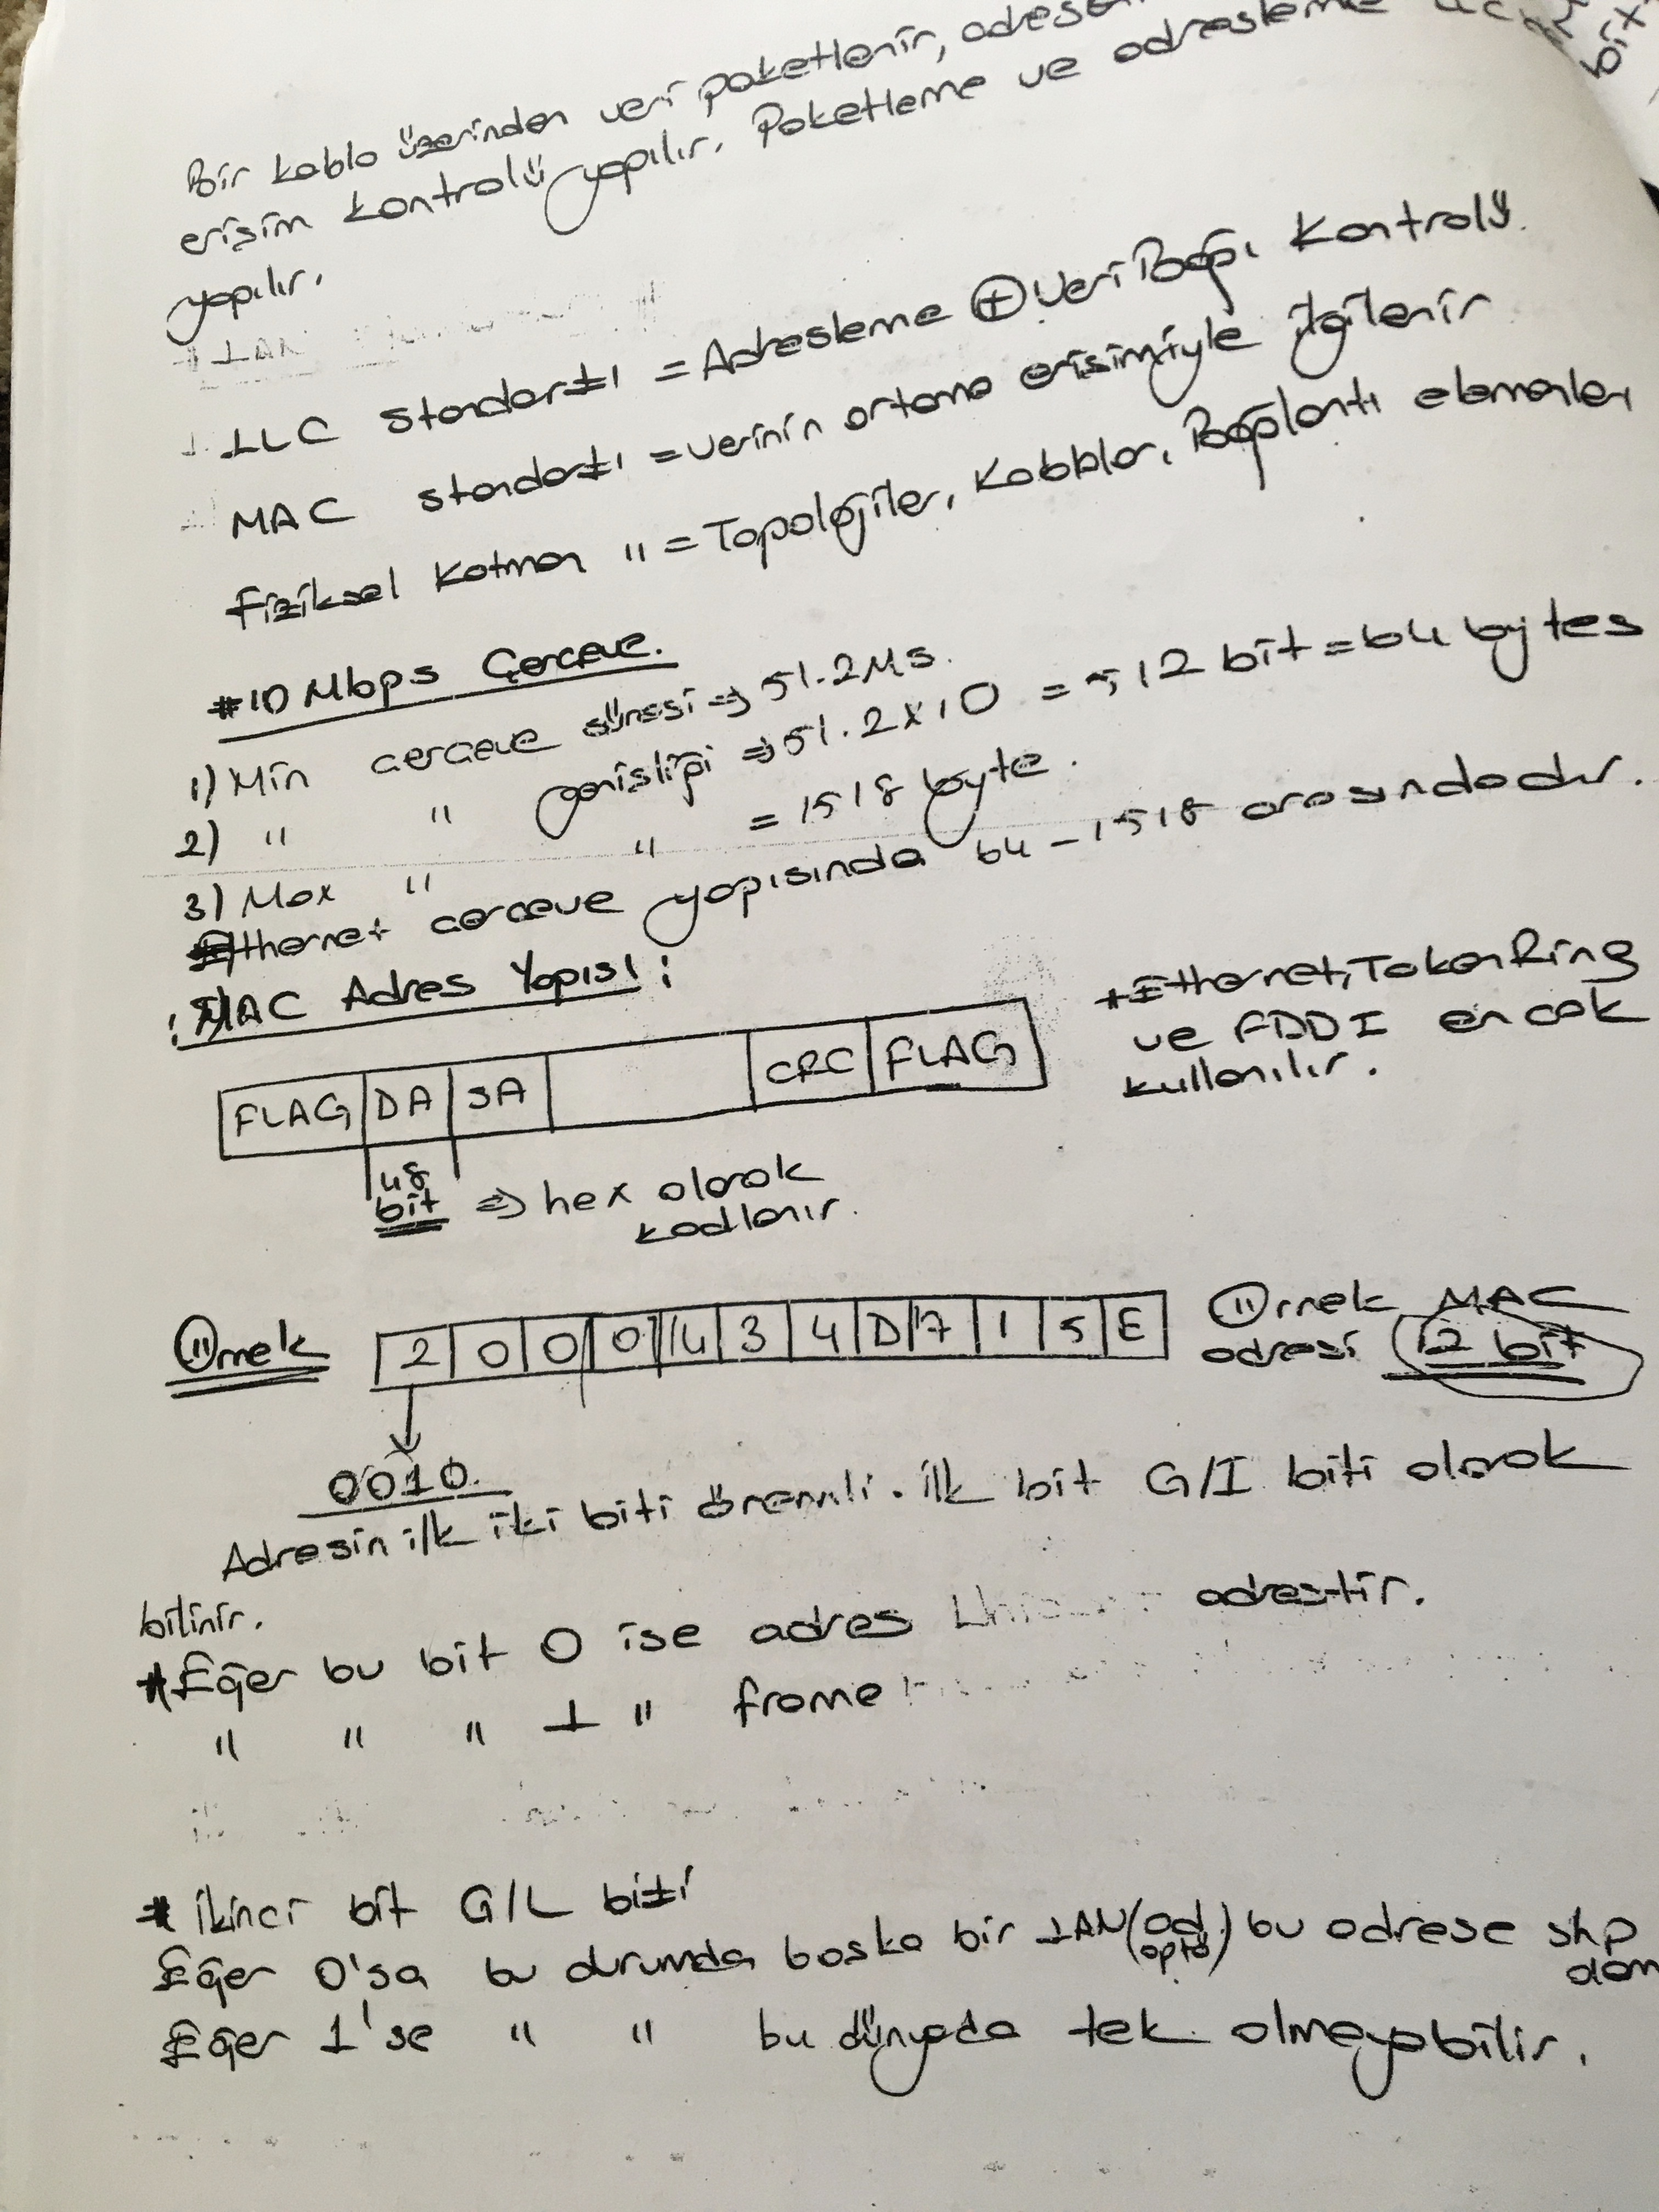 Bir kablo üzerinden veri paketlenir,
erişim kontrolü yapılır. Paketleme ve adresleme
yapılır.
LLC standartı = Adresleme + Veri Bağı Kontrolü
MAC standartı = verinin ortama erişimiyle ilgilenir
Fiziksel Katman " = Topolojiler, Kablolar, Bağlantı elemanları
#10 Mbps Çerçeve.
1) Min çerçeve süresi => 51.2 Ms.
2) " " genişliği => 51.2 x 10 = 512 bit = 64 bytes
3) Max " " = 1518 byte.
Ethernet çerçeve yapısında 64 - 1518 arasındadır.
MAC Adres Yapısı:
FLAG DA SA CRC FLAG
+Ethernet, Token Ring
ve FDDI en çok
kullanılır.
48
bit => hex olarak
kodlanır.
Örnek 2 0 0 0 4 3 4 D 7 1 5 E
Örnek MAC
adresi 12 bit
0010
Adresin ilk iki biti önemli. ilk bit G/I biti olarak
bilinir.
*Eğer bu bit 0 ise adres adrestir.
" " " 1 " frame
* İkinci bit G/L biti
Eğer 0'sa bu durumda başka bir LAN (ad. optö) bu adrese shp
Eğer 1'se " " bu dünyada tek olmayabilir.